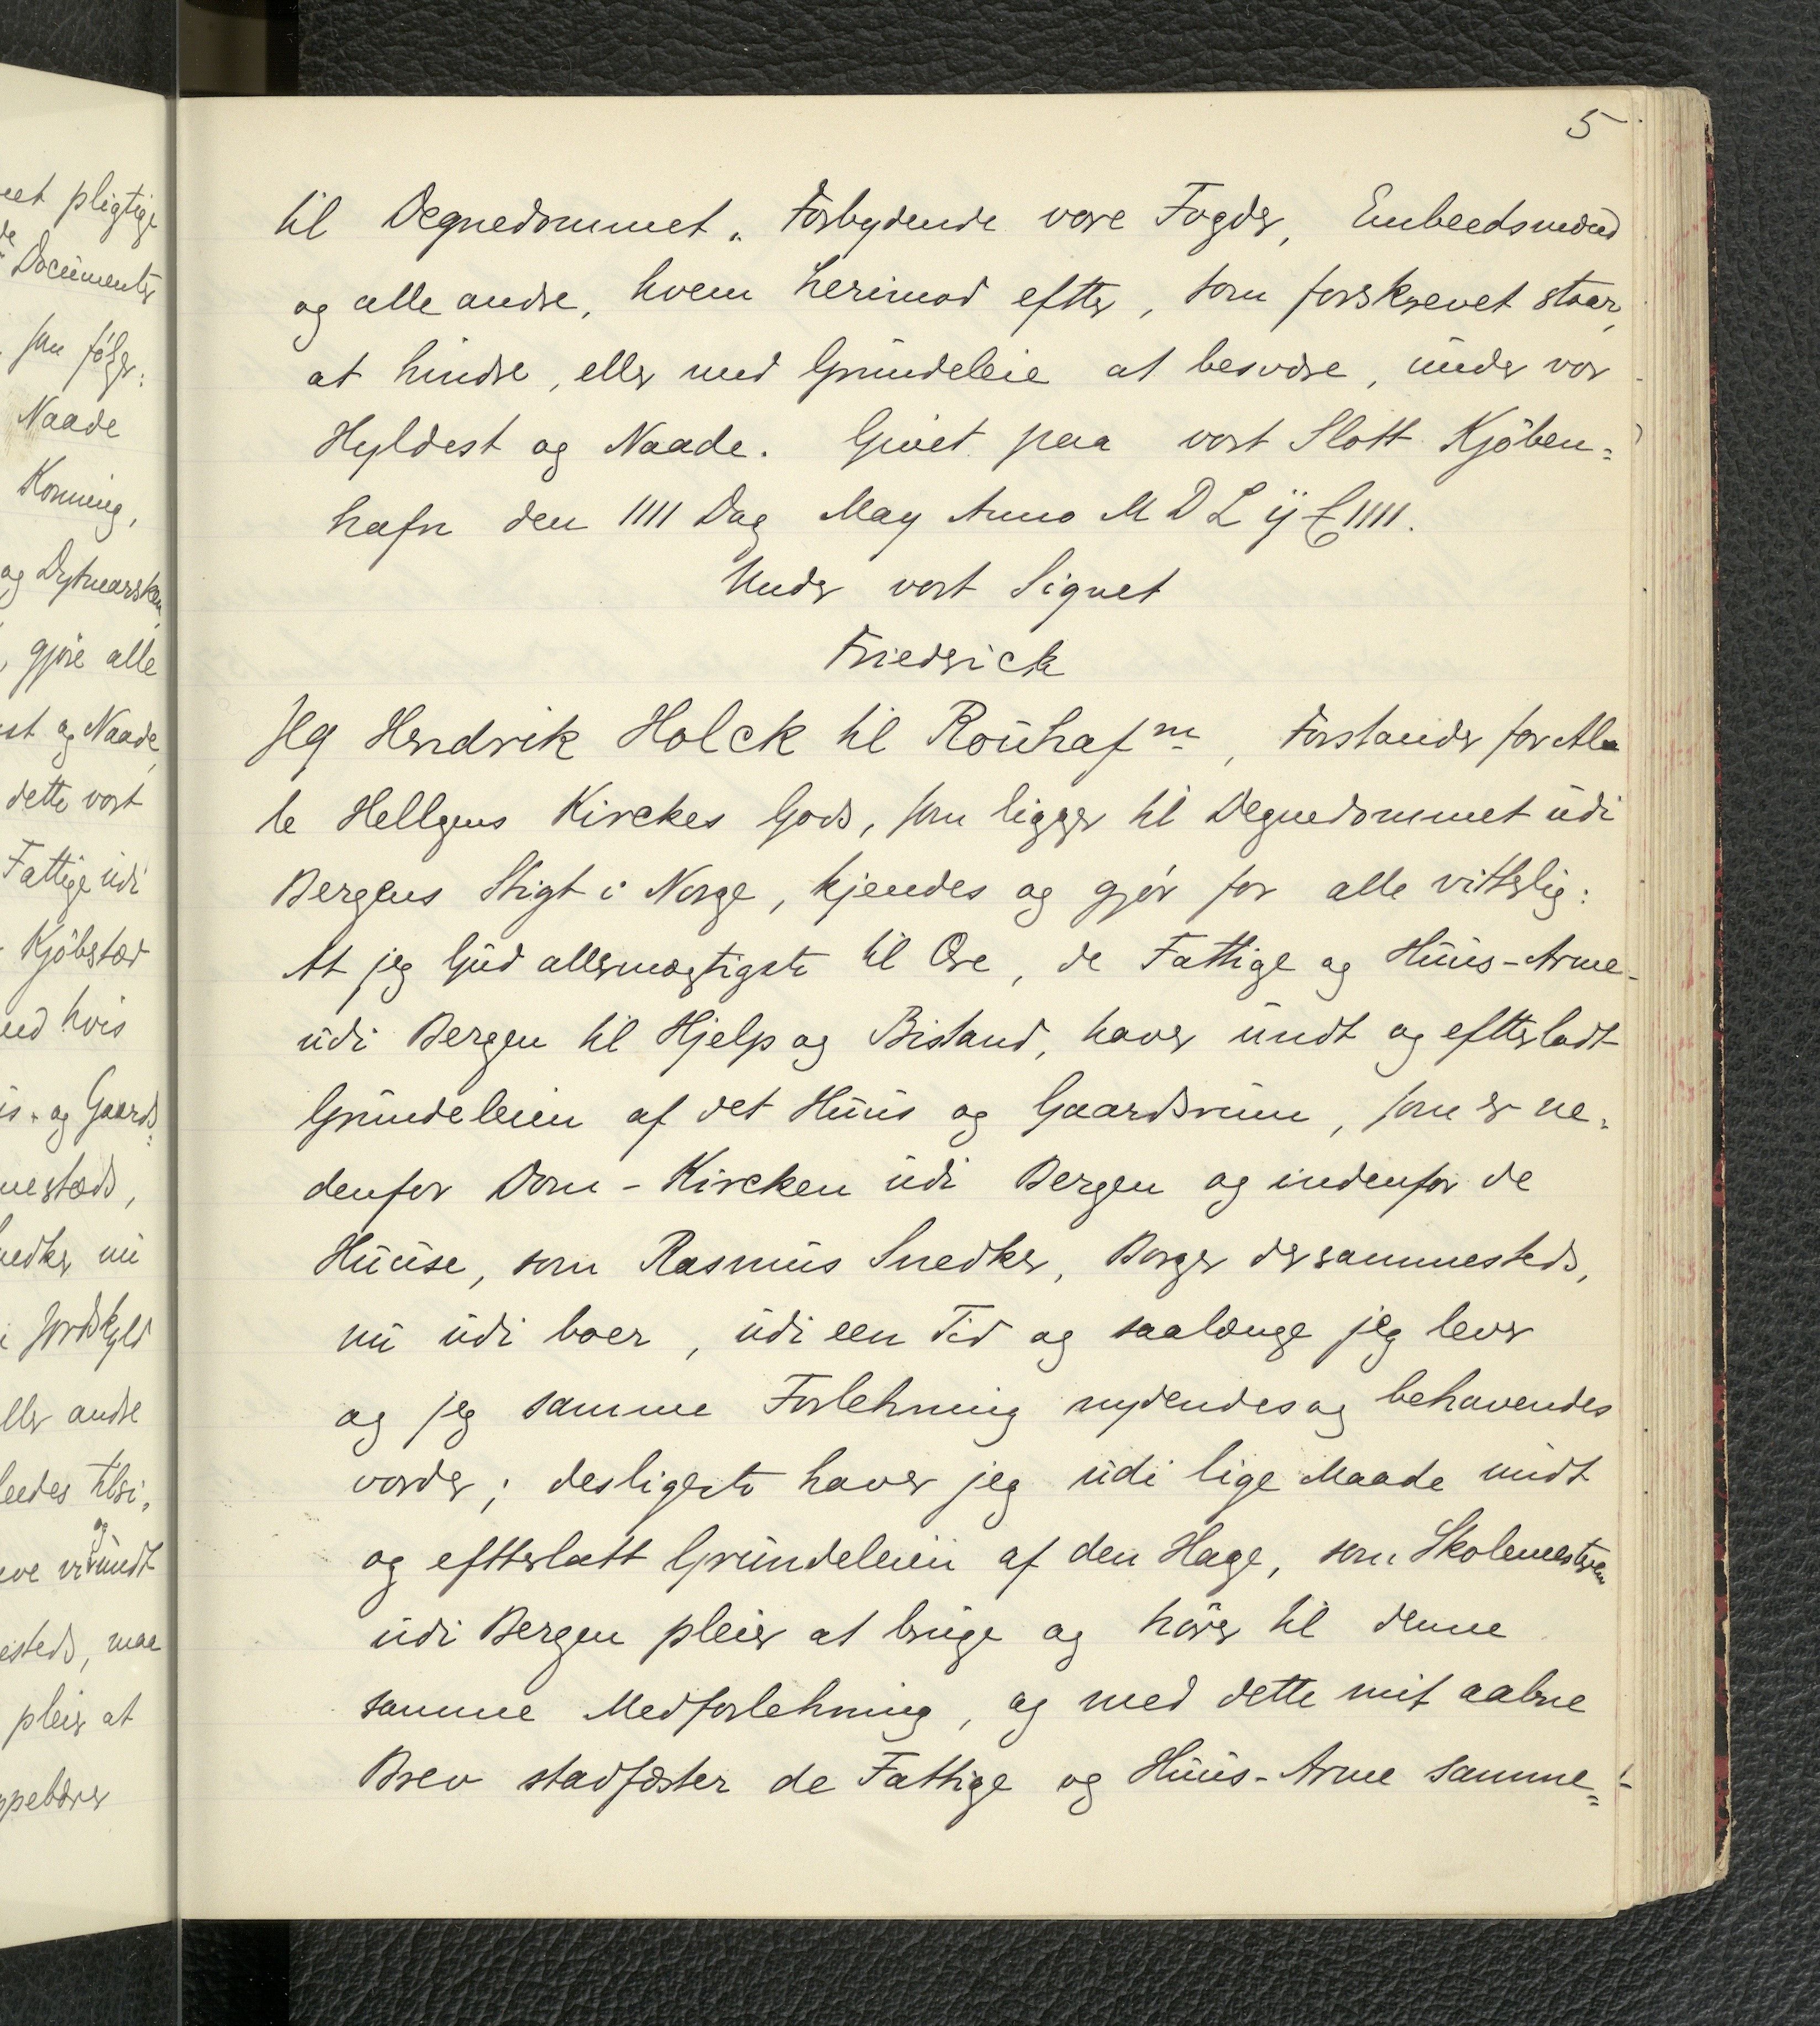 5
til Degnedommet. Forbydende vore Fogder, Embeedsmænd
og alle andre, hvem herimod efter, som forskrevet staar,
at hindre, eller med Grundeleie at besvære, under vor
Hyldest og Naade. Givet paa vort Slott Kjöben=
hafn den IIII Dag May Anno M D L ij IIII.
Under vort Signet
Friedrick
Jeg Hendrik Holck til Rouhafm, Forstander for Al=
le Hellgens Kirckes Gods, som ligger til Degnedommet udi
Bergens Stigt i Norge, kjendes og gjör for alle vitterlig:
At jeg Gud allermægtigste til Ære, de Fattige og Huus-Arme
udi Bergen til Hjelp og Bistand, haver undt og efterladt
Grundeleien af det Huus og Gaardsrum, som er ne=
denfor Dom-Kircken udi Bergen og indenfor de
Huuse, som Rasmus Snedker, Borger dersammesteds,
nu udi boer, udi een Tid og saalænge jeg lever
og jeg samme Forlehning nydendes og behavendes
vorder; desligeste haver jeg udi lige Maade undt
og efterlatt Grundeleien af den Hage, som Skolemesteren
udi Bergen pleier at bruge og hörer til denne
samme Medforlehning, og med dette mit aabne
Brev stadfæster de Fattige og Huus-Arme samme=
pligtige
Documenter
som fölger:
Naade
Konning,
og Dytmarsken,
gjöre alle
og Naade,
dette vort
Fattige udi
Kjöbstæd
hvis
og Gaards=
nu
Jordskyld
andre
tilsi=
og
vi undt
maa
pleier at